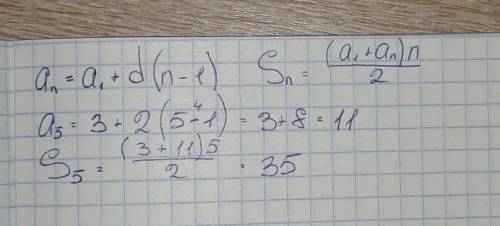 aₙ = a₁ + d(n - 1) Sₙ = (a₁ + aₙ)n / 2
a₅ = 3 + 2(5 - 1) 4 = 3 + 8 = 11
S₅ = (3 + 11)5 / 2 = 35